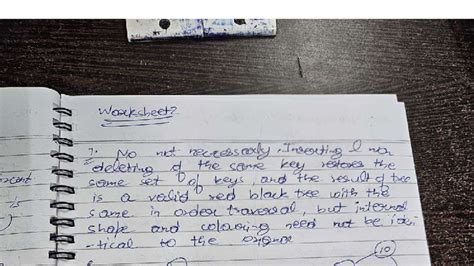 Worksheet?
1. No not necessarily. Inserting & now
deleting of the same key restores the
same set of keys, and the result of tree
is a valid red black tree with the
same in order traversal, but internal
shape and colouring need not be ide
-tical to the
10